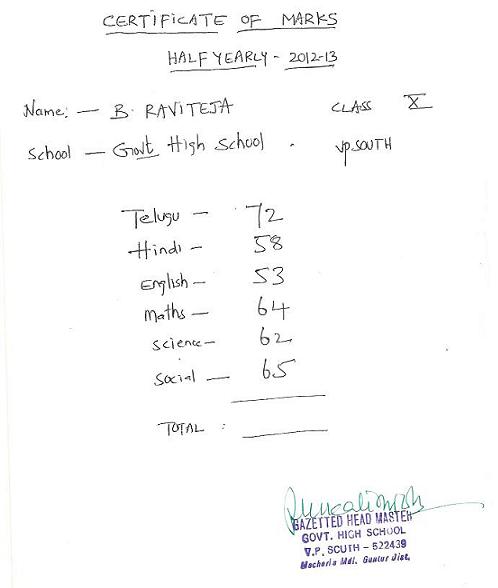 CERTIFICATE OF MARKS
HALF YEARLY - 2012-13
Name: - B. RAVITEJA CLASS X
School - Govt High School . VP SOUTH
Telugu - 72
Hindi - 58
English - 53
Maths - 64
Science - 62
Social - 65
TOTAL :
GAZETTED HEAD MASTER
GOVT. HIGH SCHOOL
V.P. SOUTH - 522439
Macherla Mdl. Guntur Dist.